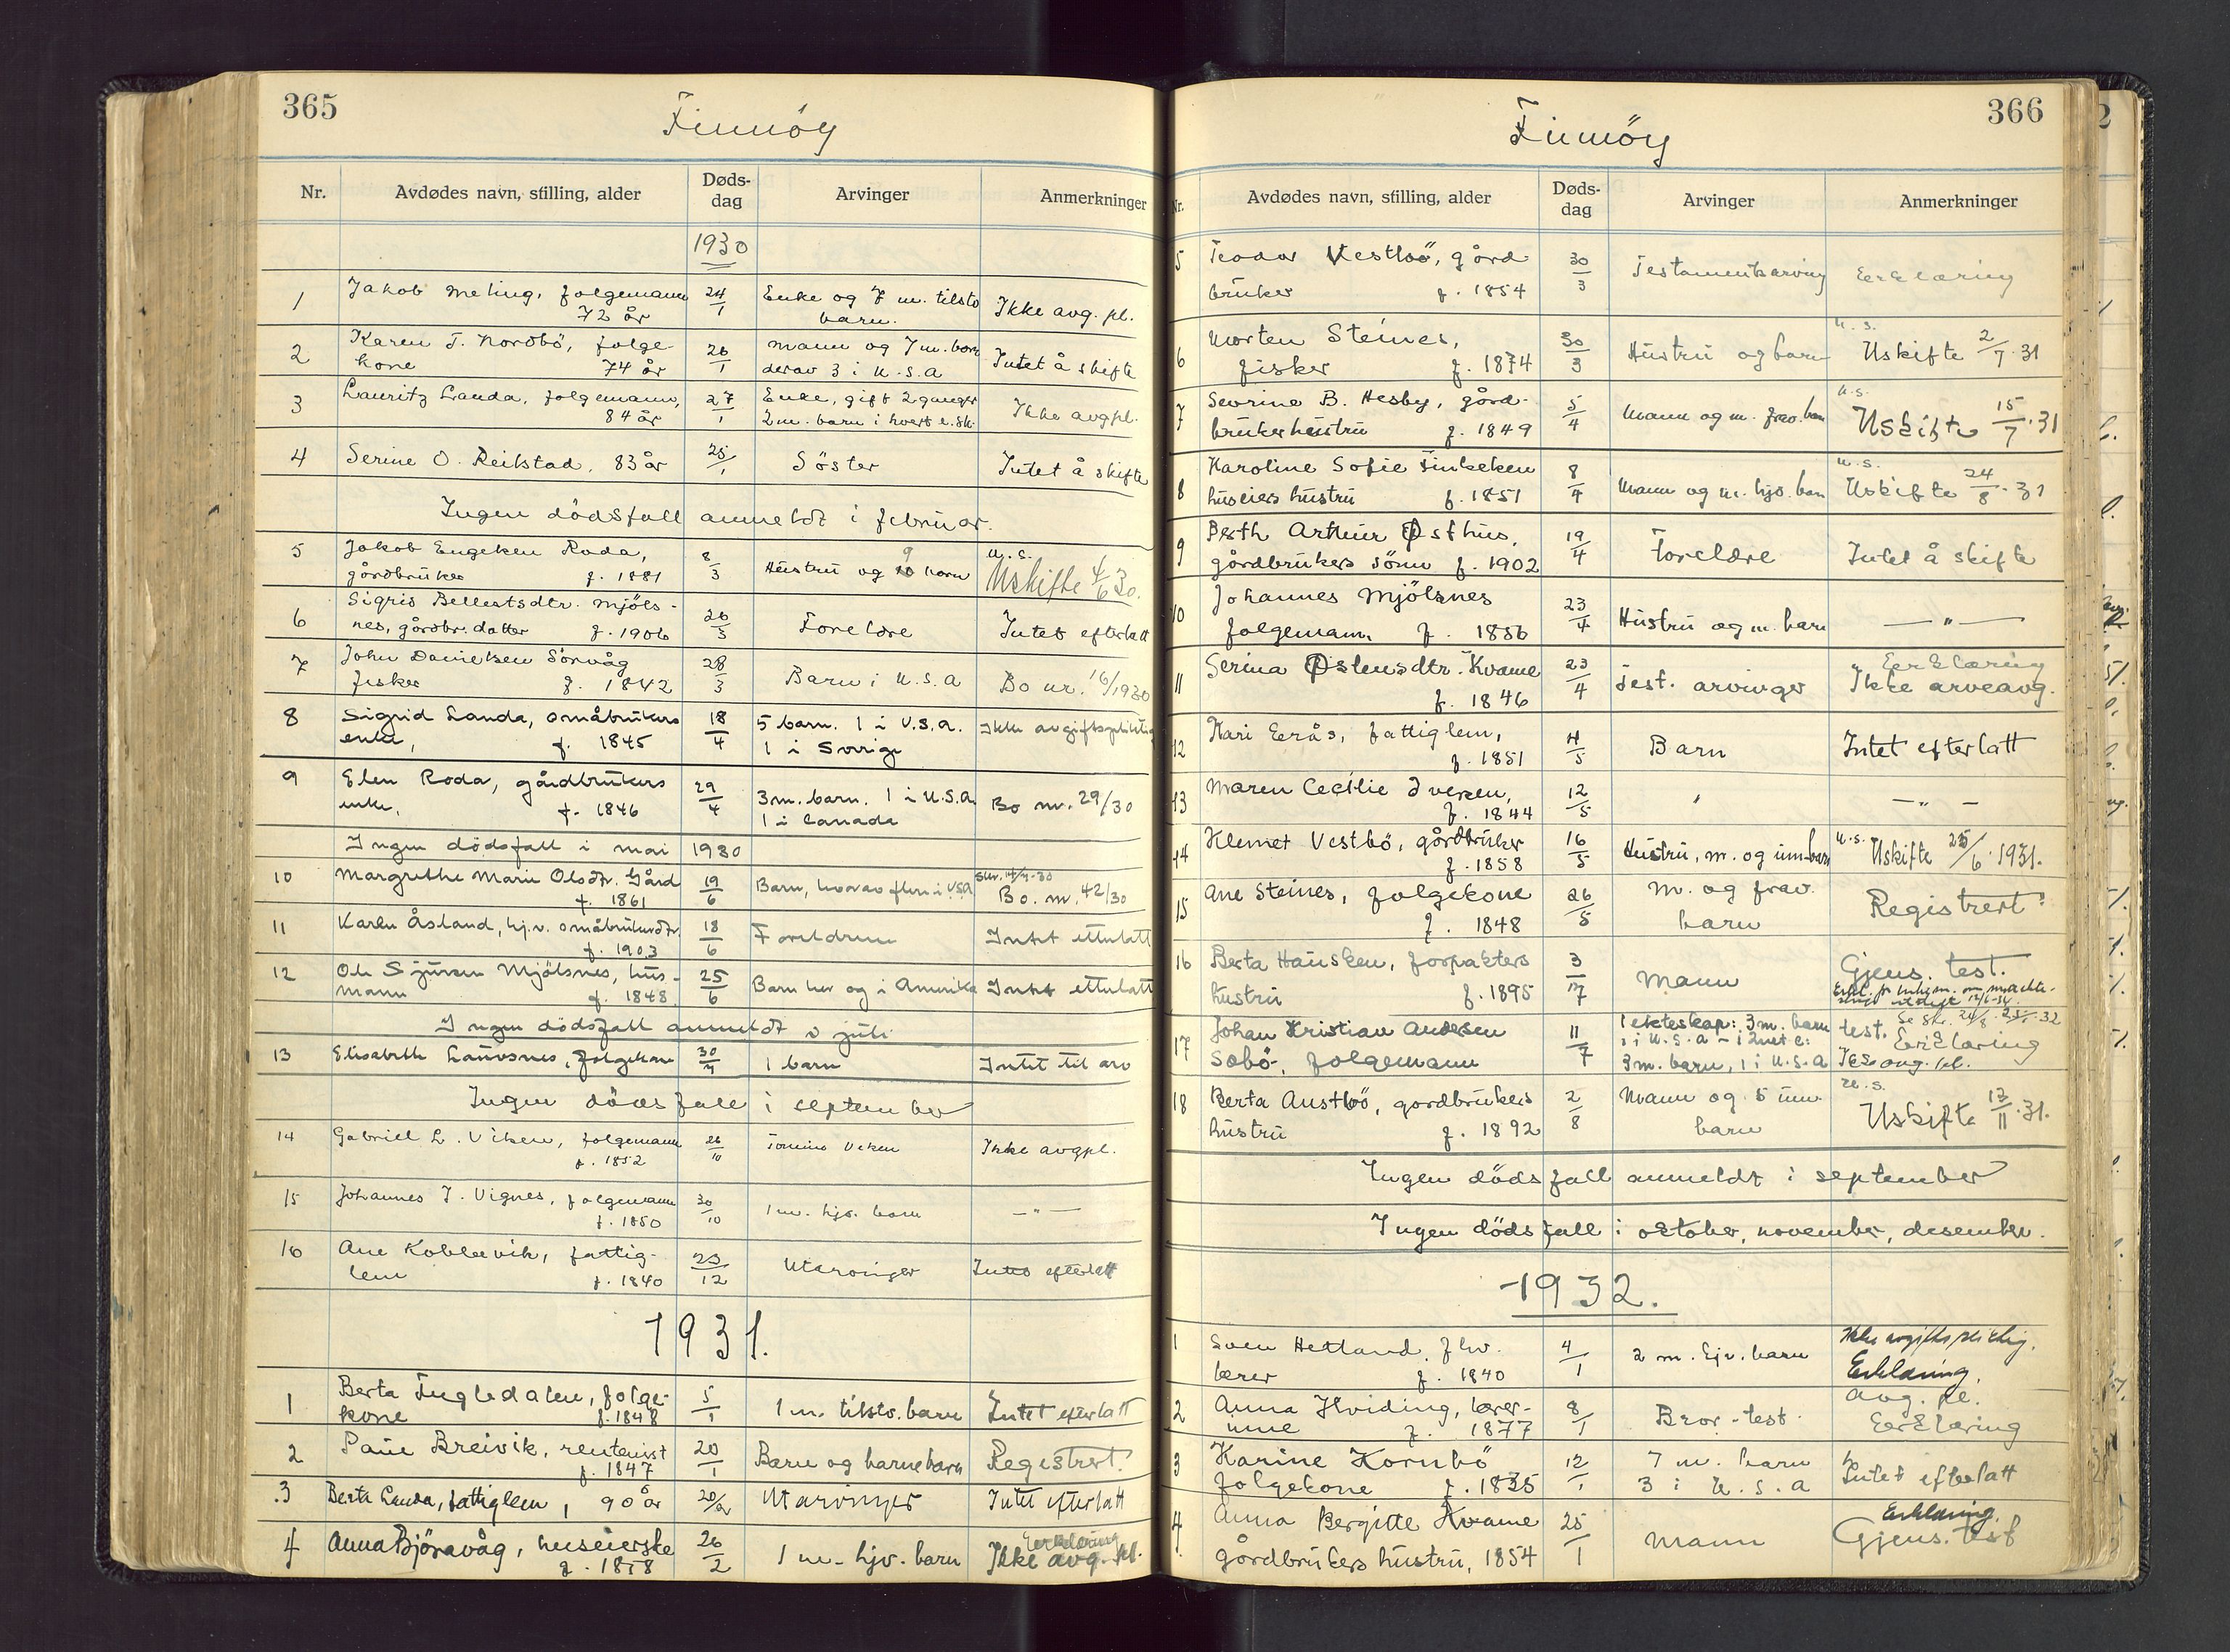 365
Finnöy
Nr. Avdødes navn, stilling, alder Døds-dag Arvinger Anmerkninger
1930
1 Jakob Meling, folgemann 24/1 Enke og 7 m. tilstv. Ikke avg. pl.
72 år barn.
2 Karen T. Nordbö, folge- 26/1 Mann og 7 m. barn Intet å skifte
kone 74 år derav 3 i U.S.A
3 Lauritz Landa, folgemann, 27/1 Enke, gift 2 ganger Ikke avgpl.
84 år 2 m. barn i hvert e.sk.
4 Serine O. Reilstad, 83 år 28/1 Söster Intet å skifte
Ingen dödsfall anmeldt i februar.
5 Jakob Engelsen Roda, 8/3 Hustru og 9 barn U.S.
gårdbruker f. 1881 Uskifte 4/6 30.
6 Sigris Bellestsdtr. Mjöls- 26/3 Foreldre Intet efterlatt
nes, gårdbr. datter f. 1906
7 John Danielsen Sörvåg 28/3 Barn i U.S.A Bo nr. 16/1930
fisker f. 1842
8 Sigrid Landa, småbrukers 18/4 5 barn. 1 i U.S.A. Ikke avgiftspliktig
enke, f. 1845 1 i Sverige
9 Elen Roda, gårdbrukers 29/4 3 m. barn. 1 i U.S.A. Bo nr. 29/30
enke, f. 1846 1 i Canada
Ingen dödsfall i mai 1930
10 Margrethe Marie Olsdtr. Gård 19/6 Barn, hvorav flere i USA Bo. nr. 42/30
f. 1861
11 Karen Åsland, hj.v. småbrukerdtr. 18/6 Foreldrene Intet etterlatt
f. 1903
12 Ole Sjursen Mjölsnes, hus- 25/6 Barn her og i Amerika Intet etterlatt
mann f. 1848
Ingen dödsfall anmeldt i juli
13 Elisabeth Lauvsnes, folgekone 30/7 1 barn Intet til arv
Ingen dödsfall i september
14 Gabriel L. Viken, folgemann 26/10 Tomine Viken Ikke avgpl.
f. 1852
15 Johannes J. Vignes, folgemann 30/10 1 m. hjv. barn — " —
f. 1850
16 Ane Kobbavik, fattig- 23/12 Utarvinger Intet efterlatt
lem f. 1840
1931.
1 Berta Fugledalen, folge- 5/1 1 m. tilstv. barn Intet efterlatt
kone f. 1848
2 Paul Breivik, rentenist 20/1 Barn og barnebarn Registrert.
f. 1847
3 Berta Landa, fattiglem, 90 år 20/2 Utarvinger Intet efterlatt
4 Anna Björavåg, huseierske 26/2 1 m. hjv. barn Erklæring
f. 1858 Ikke avg. pl.
366
Finnöy
Nr. Avdødes navn, stilling, alder Døds-dag Arvinger Anmerkninger
5 Teodor Vestbö, gård 30/3 Testamentsarving Erklæring
bruker f. 1854
6 Morten Steines, 30/3 Hustru og barn U.S.
fisker f. 1874 Uskifte 2/7.31
7 Sevrine B. Hesby, gård- 5/4 Mann og m. frav. barn U.S.
brukerhustru f. 1849 Uskifte 15/7.31
8 Karoline Sofie 8/4 Mann og m. hjv. barn U.S.
huseiers hustru f. 1851 Uskifte 24/8.31
9 Berth Arthur Østhus, 19/4 Foreldre Intet å skifte
gårdbrukers sönn f. 1902
10 Johannes Mjölsnes 23/4 Hustru og m. barn — " —
folgemann f. 1856
11 Serina Østensdtr. Kvame 23/4 Test. arvinger Erklæring
f. 1846 Ikke arveavg.
12 Kari Eerås, fattiglem, 4/5 Barn Intet efterlatt
f. 1851
13 Maren Cecilie Iversen, 12/5 " — " —
f. 1844
14 Klemet Vestbö, gårdbruker 16/5 Hustru, m. og um. barn U.S. Uskifte 25/6.1931.
f. 1858
15 Ane Steines, folgekone 26/5 M. og frav. Registrert
f. 1848 barn
16 Berta Hausken, forpakters 3/7 Mann Gjens. test.
hustru f. 1895
17 Johan Kristian Andersen 11/7 1 ekteskap: 3 m. barn test. Erklæring
Sobö, folgemann 1 i U.S.A - i 2net e:
3 m. barn, 1 i U.S.A Ikke avg. pl.
18 Berta Austbö, gordbrukers 2/8 Mann og 5 um. U.S.
hustru f. 1892 barn Uskifte 13/11.31.
Ingen dödsfall anmeldt i september
Ingen dödsfall i oktober, november, desember.
1932.
1 Sven Hetland, fhv. 4/1 2 m. hjv. barn Ikke avgiftspliktig.
lærer f. 1840 Erklæring.
2 Anna Hviding, lærer- 8/1 Bror - test. avg. pl.
inne f. 1877 Erklæring
3 Karine Kornbö 12/1 7 m. barn Intet efterlatt
folgekone f. 1835 3 i U.S.A
4 Anna Bergitte Kvame 25/1 Mann Erklæring.
gårdbrukers hustru, 1854 Gjens. test